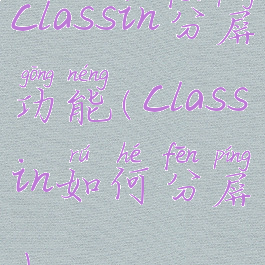 Classin分屏
gōng néng
功能(Class
rú hé fēn píng
in如何分屏
)